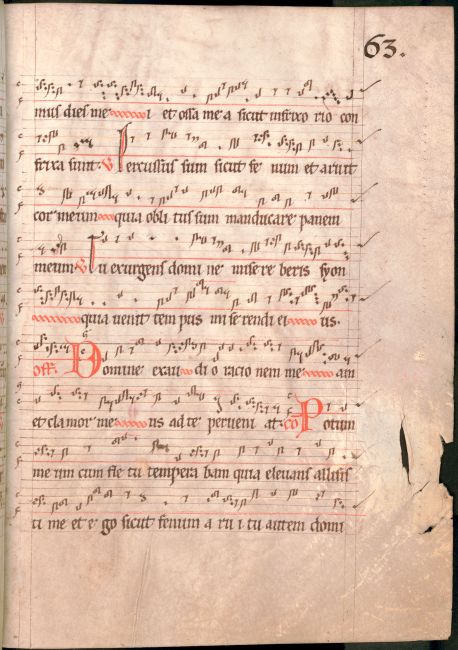 63.
mus dies me i et ossa me a sicut in frixo rio con
frixa sunt. V Percussus sum sicut fe num et aruit
cor meum quia obli tus sum manducare panem
meum V Tu exurgens domi ne mise re beris syon
quia venit tem pus mi se rendi ei us.
off. Domine exau di o racio nem me am
et clamor me us ad te perveni at. co Potum
me um cum fle tu tempera bam quia elevans allisis
ti me et e go sicut fenum a ru i tu autem domi